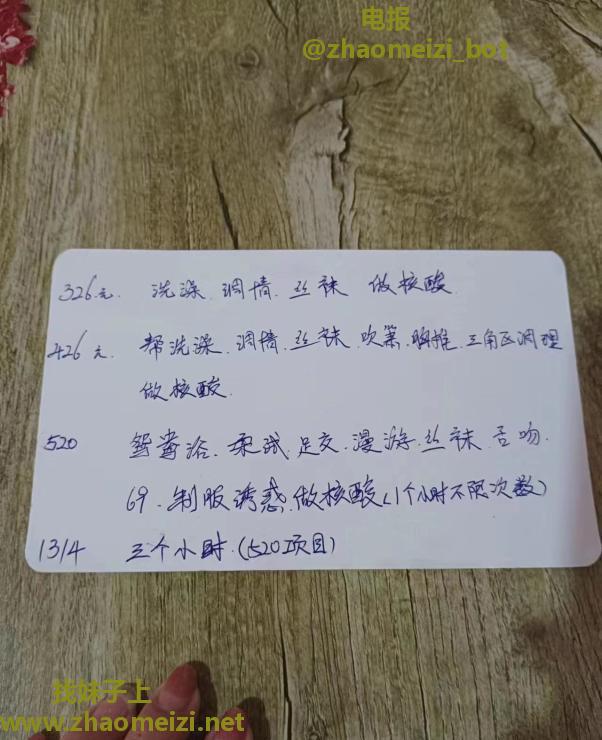 电报
@zhaomeizi_bot
326元. 洗澡 调情. 丝袜 做核酸.
426元. 帮洗澡. 调情. 丝袜. 吹箫. 胸推. 三角区调理
做核酸.
520 鸳鸯浴. 足交. 漫游. 丝袜. 舌吻.
69. 制服诱惑. 做核酸(1个小时不限次数)
1314 三个小时.(520项目)
找妹子上
www.zhaomeizi.net